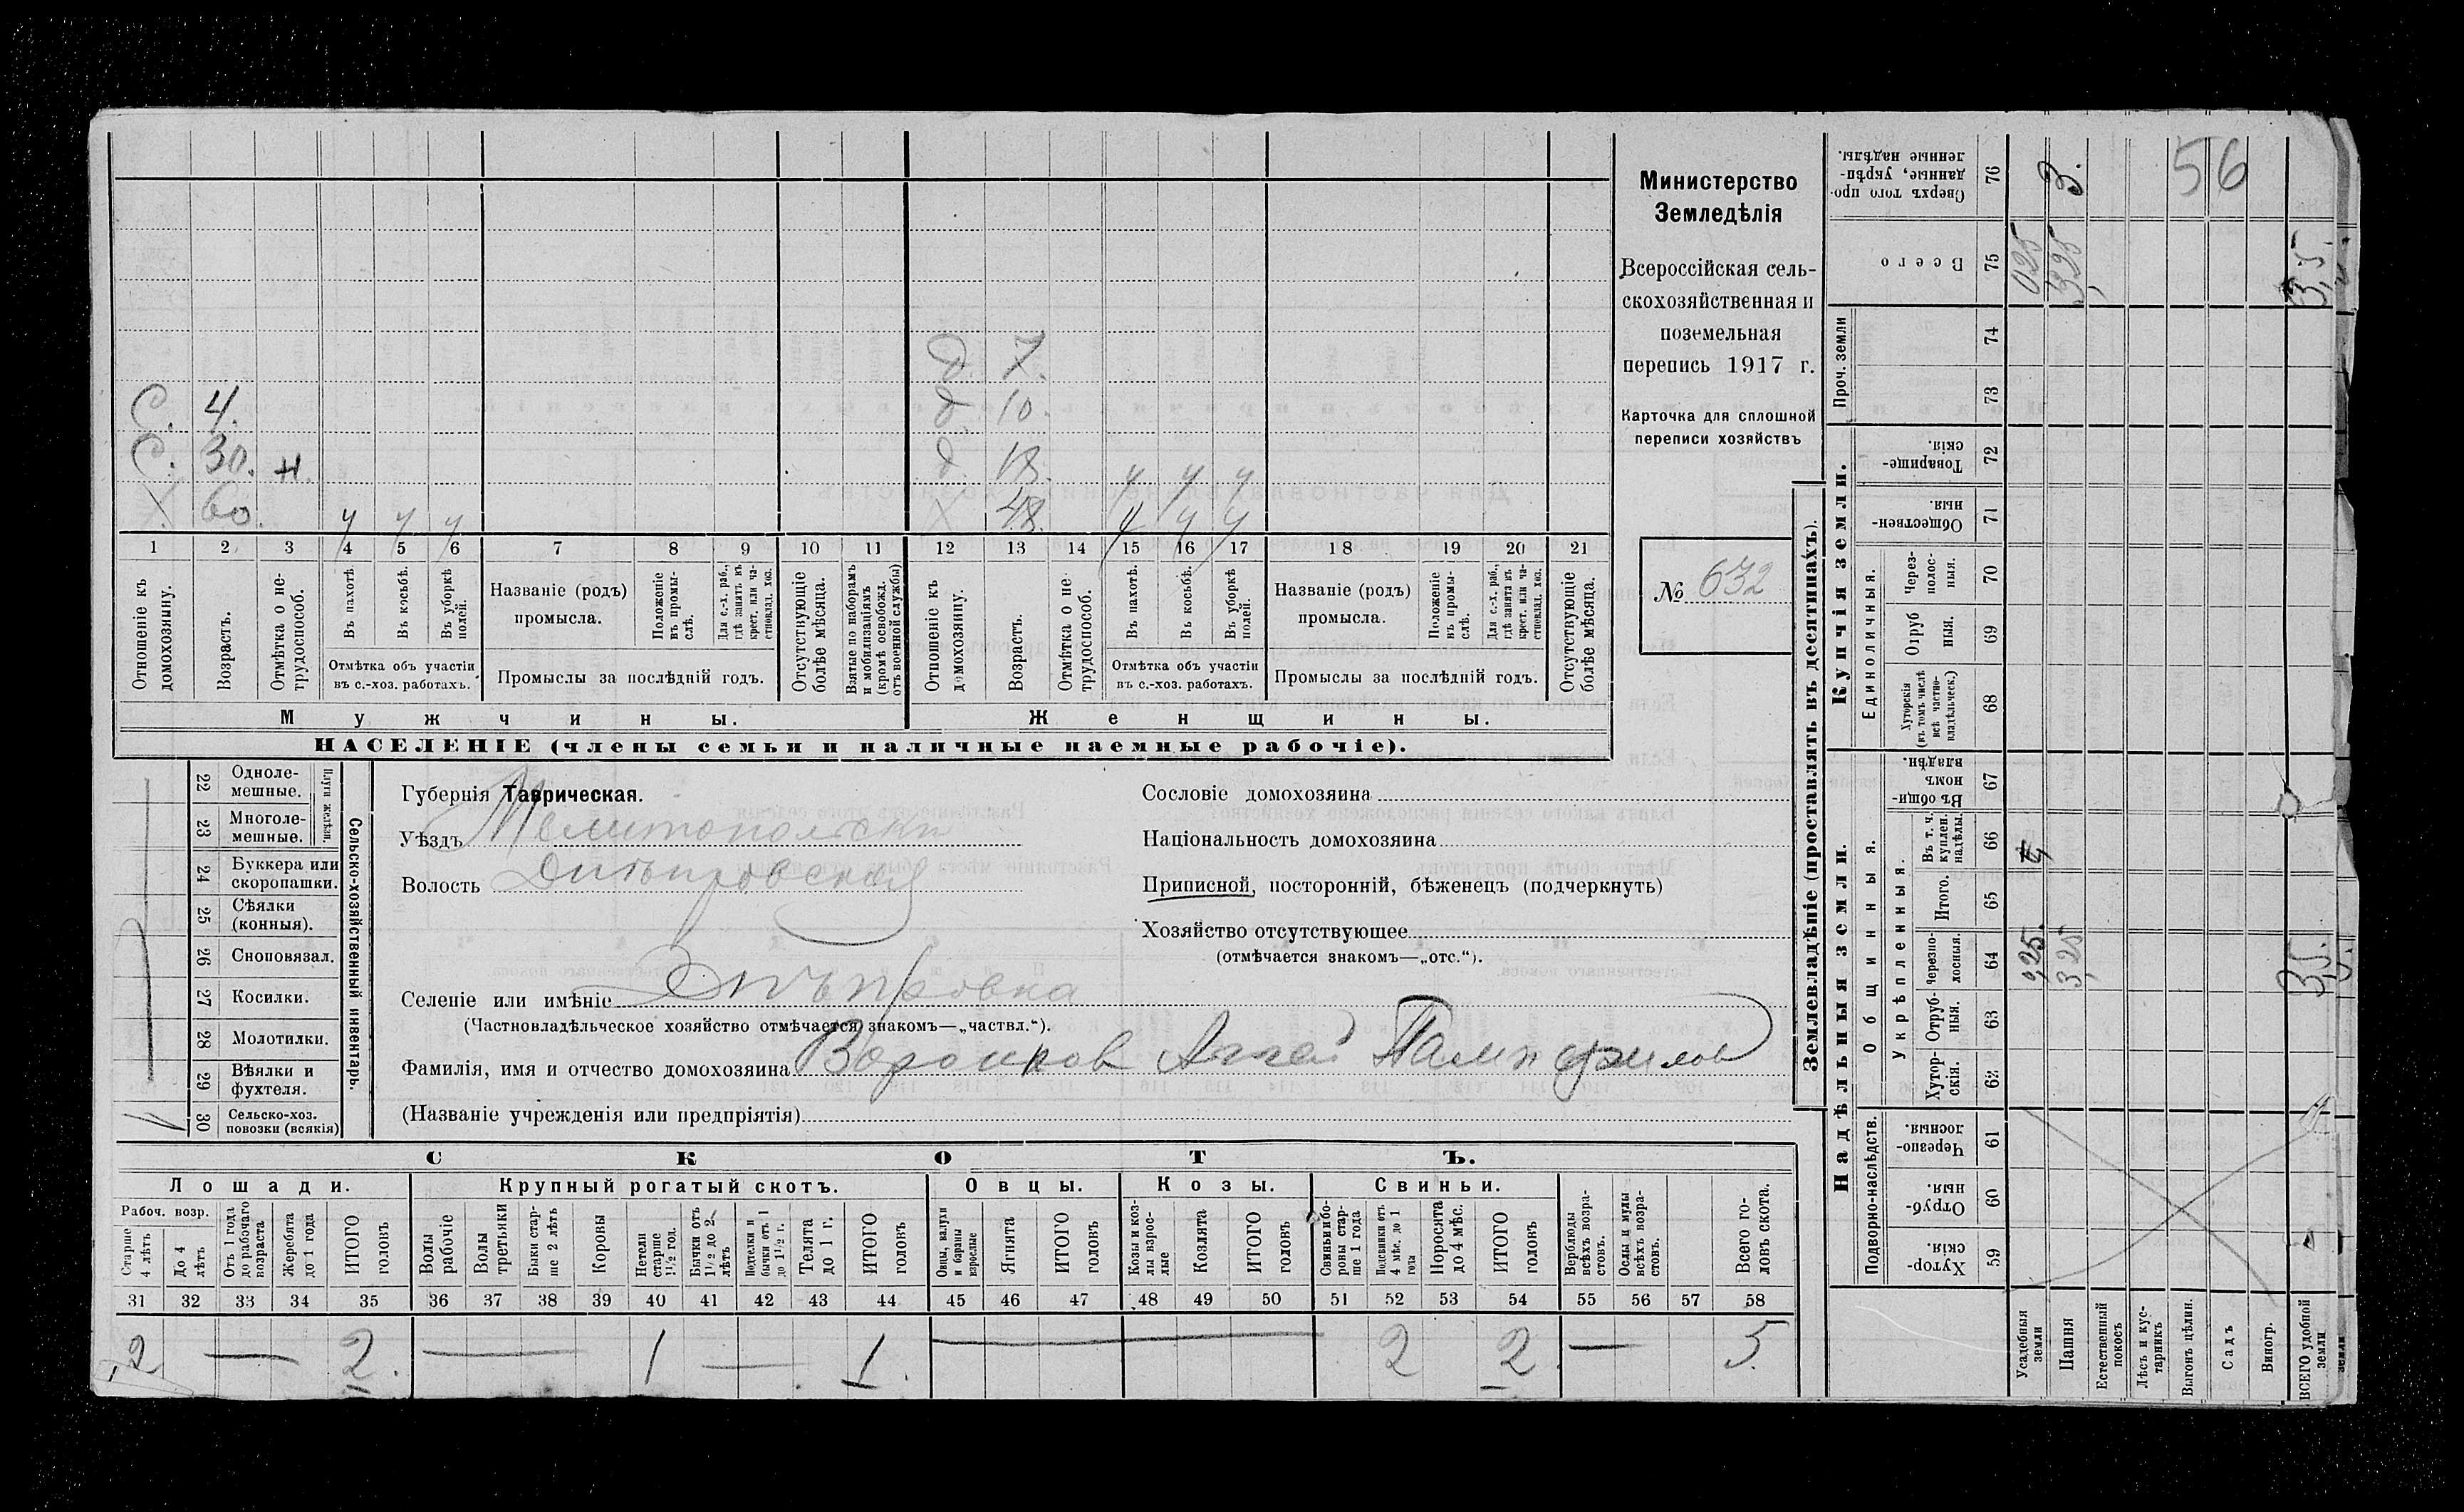 Министерство
Земледѣлія
Всероссійская сель-
скохозяйственная и
поземельная
перепись 1917 г.
Карточка для сплошной
переписи хозяйствъ
№ 632
д. 7.
С. 4. д. 10.
С. 30. н. д. 18. у у у
Х. 60. у у у Х 48. у у у
1 2 3 4 5 6 7 8 9 10 11 12 13 14 15 16 17 18 19 20 21
Отношеніе къ домохозяину.
Возрастъ.
Отмѣтка о не-трудоспособ.
Въ пахотѣ.
Въ косьбѣ.
Въ уборкѣ полей.
Отмѣтка объ участіи
въ с.-хоз. работахъ.
Названіе (родъ)
промысла.
Положеніе въ промы-слѣ.
Для с.-х. раб., гдѣ занятъ въ крест. или ча-стновлад. хоз.
Промыслы за послѣдній годъ.
Отсутствующіе болѣе мѣсяца.
Взятые по наборамъ и мобилизаціямъ (кромѣ освобожд. отъ военной службы)
Отношеніе къ домохозяину.
Возрастъ.
Отмѣтка о не-трудоспособ.
Въ пахотѣ.
Въ косьбѣ.
Въ уборкѣ полей.
Отмѣтка объ участіи
въ с.-хоз. работахъ.
Названіе (родъ)
промысла.
Положеніе въ промы-слѣ.
Для с.-х. раб., гдѣ занята въ крест. или ча-стновлад. хоз.
Промыслы за послѣдній годъ.
Отсутствующіе болѣе мѣсяца.
Мужчины. Женщины.
НАСЕЛЕНІЕ (члены семьи и наличные наемные рабочіе).
Сельско-хозяйственный инвентарь.
Плуги желѣзн.
22 Одноле-мешные.
23 Многоле-мешные.
24 Буккера или скоропашки.
25 Сѣялки (конныя).
26 Сноповязал.
27 Косилки.
28 Молотилки.
29 Вѣялки и фухтеля.
30 Сельско-хоз. повозки (всякія) 1
Губернія Таврическая.
Уѣздъ Мелитопольски
Волость Днѣпровская
Селеніе или имѣніе Днѣпровка
(Частновладѣльческое хозяйство отмѣчается знакомъ—„частвл.“).
Фамилія, имя и отчество домохозяина Воронков Памфилов
(Названіе учрежденія или предпріятія)
Сословіе домохозяина
Національность домохозяина
Приписной, посторонній, бѣженецъ (подчеркнуть)
Хозяйство отсутствующее
(отмѣчается знакомъ—„отс.“).
СКОТЪ.
Лошади. Крупный рогатый скотъ. Овцы. Козы. Свиньи.
Рабоч. возр.
Старше 4 лѣтъ
До 4 лѣтъ
Отъ 1 года до рабочаго возраста
Жеребята до 1 года
ИТОГО головъ
Волы рабочіе
Волы третьяки
Быки стар-ше 2 лѣтъ
Коровы
Нетели старше 1½ год.
Бычки отъ 1½ до 2 лѣтъ
Подтелки и бычки отъ 1 до 1½ г.
Телята до 1 г.
ИТОГО головъ
Овцы, валухи и бараны взрослые
Ягнята
ИТОГО головъ
Козы и коз-лы взрос-лые
Козлята
ИТОГО головъ
Свиньи и бо-ровы стар-ше 1 года
Подсвинки отъ 4 мѣс. до 1 года
Поросята до 4 мѣс.
ИТОГО головъ
Верблюды всѣхъ возра-стовъ.
Ослы и мулы всѣхъ возра-стовъ.
Всего го-ловъ скота.
31 32 33 34 35 36 37 38 39 40 41 42 43 44 45 46 47 48 49 50 51 52 53 54 55 56 57 58
2 — 2. — 1 — 1. — 2 2. — 5.
Землевладѣніе (проставлять въ десятинахъ).
Купчія земли.
Надѣльныя земли.
Сверхъ того про-данные, укрѣп-ленные надѣлы. 76 3. 56
Всего 75 0,25 3,25 3,5.
Проч. земли 74 73
Товарище-скія. 72
Обществен-ныя. 71
Единоличныя.
Черезполос-ныя. 70
Отруб-ныя. 69
Хуторскія (въ томъ числѣ всѣ частно-владѣльческ.) 68
Общинныя.
Въ общи-номъ владѣн. 67
Укрѣпленныя.
Въ т. ч. куплен. надѣлы. 66
Итого. 65
Черезпо-лосныя. 64 0,25. 3,25 3,5.
Отруб-ныя. 63
Хутор-скія. 62
Подворно-наслѣдств.
Черезпо-лосныя. 61
Отруб-ныя. 60
Хутор-скія. 59
Усадебныя земли
Пашня
Естественный покосъ
Лѣсъ и кус-тарникъ
Выгонъ цѣлин.
Садъ
Виногр.
ВСЕГО удобной земли